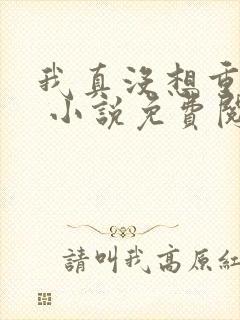 我真沒想重
小說免費閱
請叫我高原紅